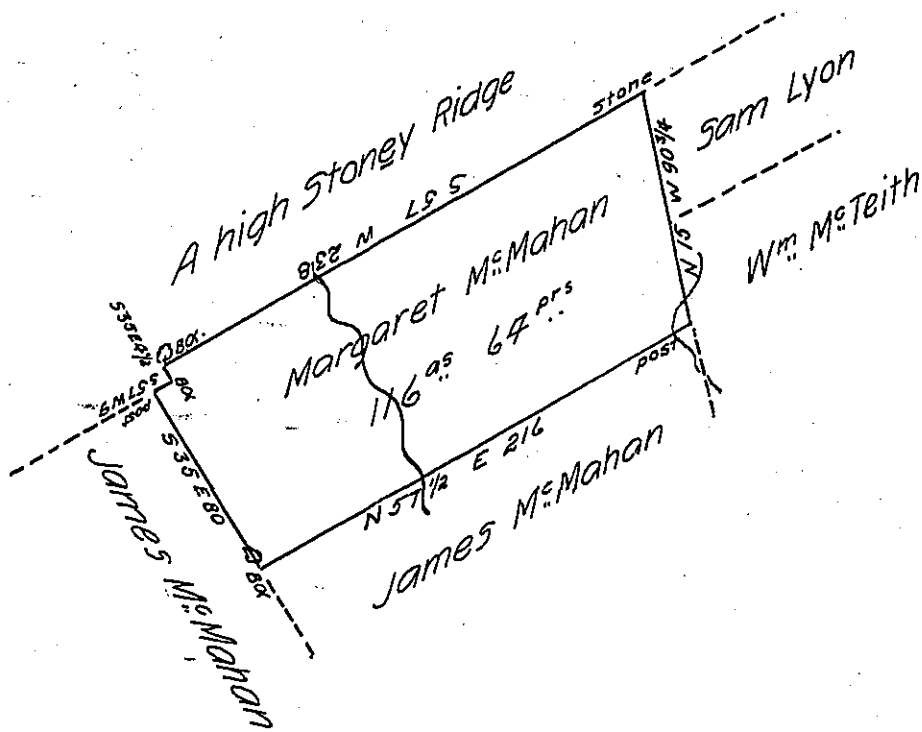 A high Stoney Ridge
Stone
S 57 W 238
Sam Lyon
N 15 W 90 3/4
Wm McTeith
Margaret McMahan
116 as 64 prs
S35E4½
BO.
BO
S57W9
post
S 35 E 80
BO
N 57 1/2 E 216
post
James McMahan
James McMahan